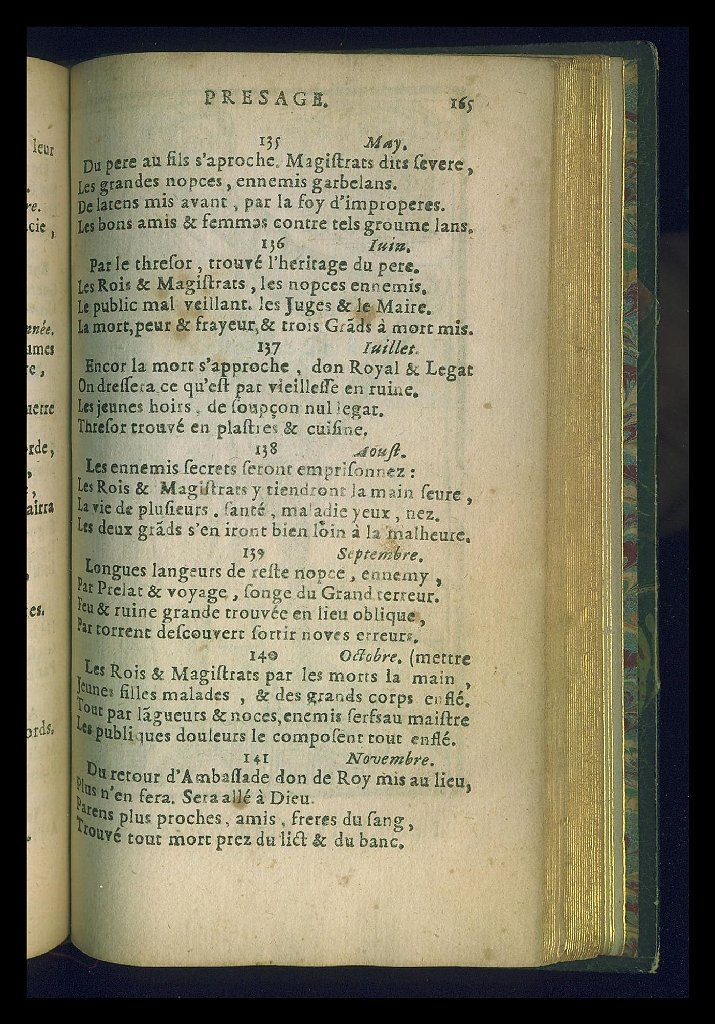 PRESAGE. 165
135 May.
Du pere au fils s'aproche. Magiſtrats dits ſevere,
Les grandes nopces, ennemis garbelans.
De latens mis avant, par la foy d'improperes.
Les bons amis & femmes contre tels groume lans.
136 Iuin.
Par le threſor, trouvé l'heritage du pere.
Les Rois & Magiſtrats, les nopces ennemis.
Le public mal veillant. les Juges & le Maire.
La mort, peur & frayeur, & trois Grãds à mort mis.
137 Iuillet.
Encor la mort s'approche, don Royal & Legat
On dreſſera ce qu'eſt par vieilleſſe en ruine.
Les jeunes hoirs, de ſoupçon nul legat.
Threſor trouvé en plaſtres & cuiſine.
138 Aouſt.
Les ennemis ſecrets ſeront empriſonnez:
Les Rois & Magiſtrats y tiendront la main ſeure,
La vie de pluſieurs. ſanté, maladie yeux, nez.
Les deux grãds s'en iront bien loin à la malheure.
139 Septembre.
Longues langeurs de teſte nopce, ennemy,
Par Prelat & voyage, ſonge du Grand terreur.
Feu & ruine grande trouvée en lieu oblique,
Par torrent deſcouvert ſortir noves erreurs.
140 Octobre. (mettre
Les Rois & Magiſtrats par les morts la main,
Jeunes filles malades, & des grands corps enflé.
Tout par lãgueurs & noces, enemis ſerfsau maiſtre
Les publiques douleurs le compoſent tout enflé.
141 Novembre.
Du retour d'Ambaſſade don de Roy mis au lieu,
Plus n'en fera. Sera allé à Dieu.
Parens plus proches, amis, freres du ſang,
Trouvé tout mort prez du lict & du banc.
leur
re.
cie,
nnée.
umes
re,
uerre
rde,
airra
es.
ords.